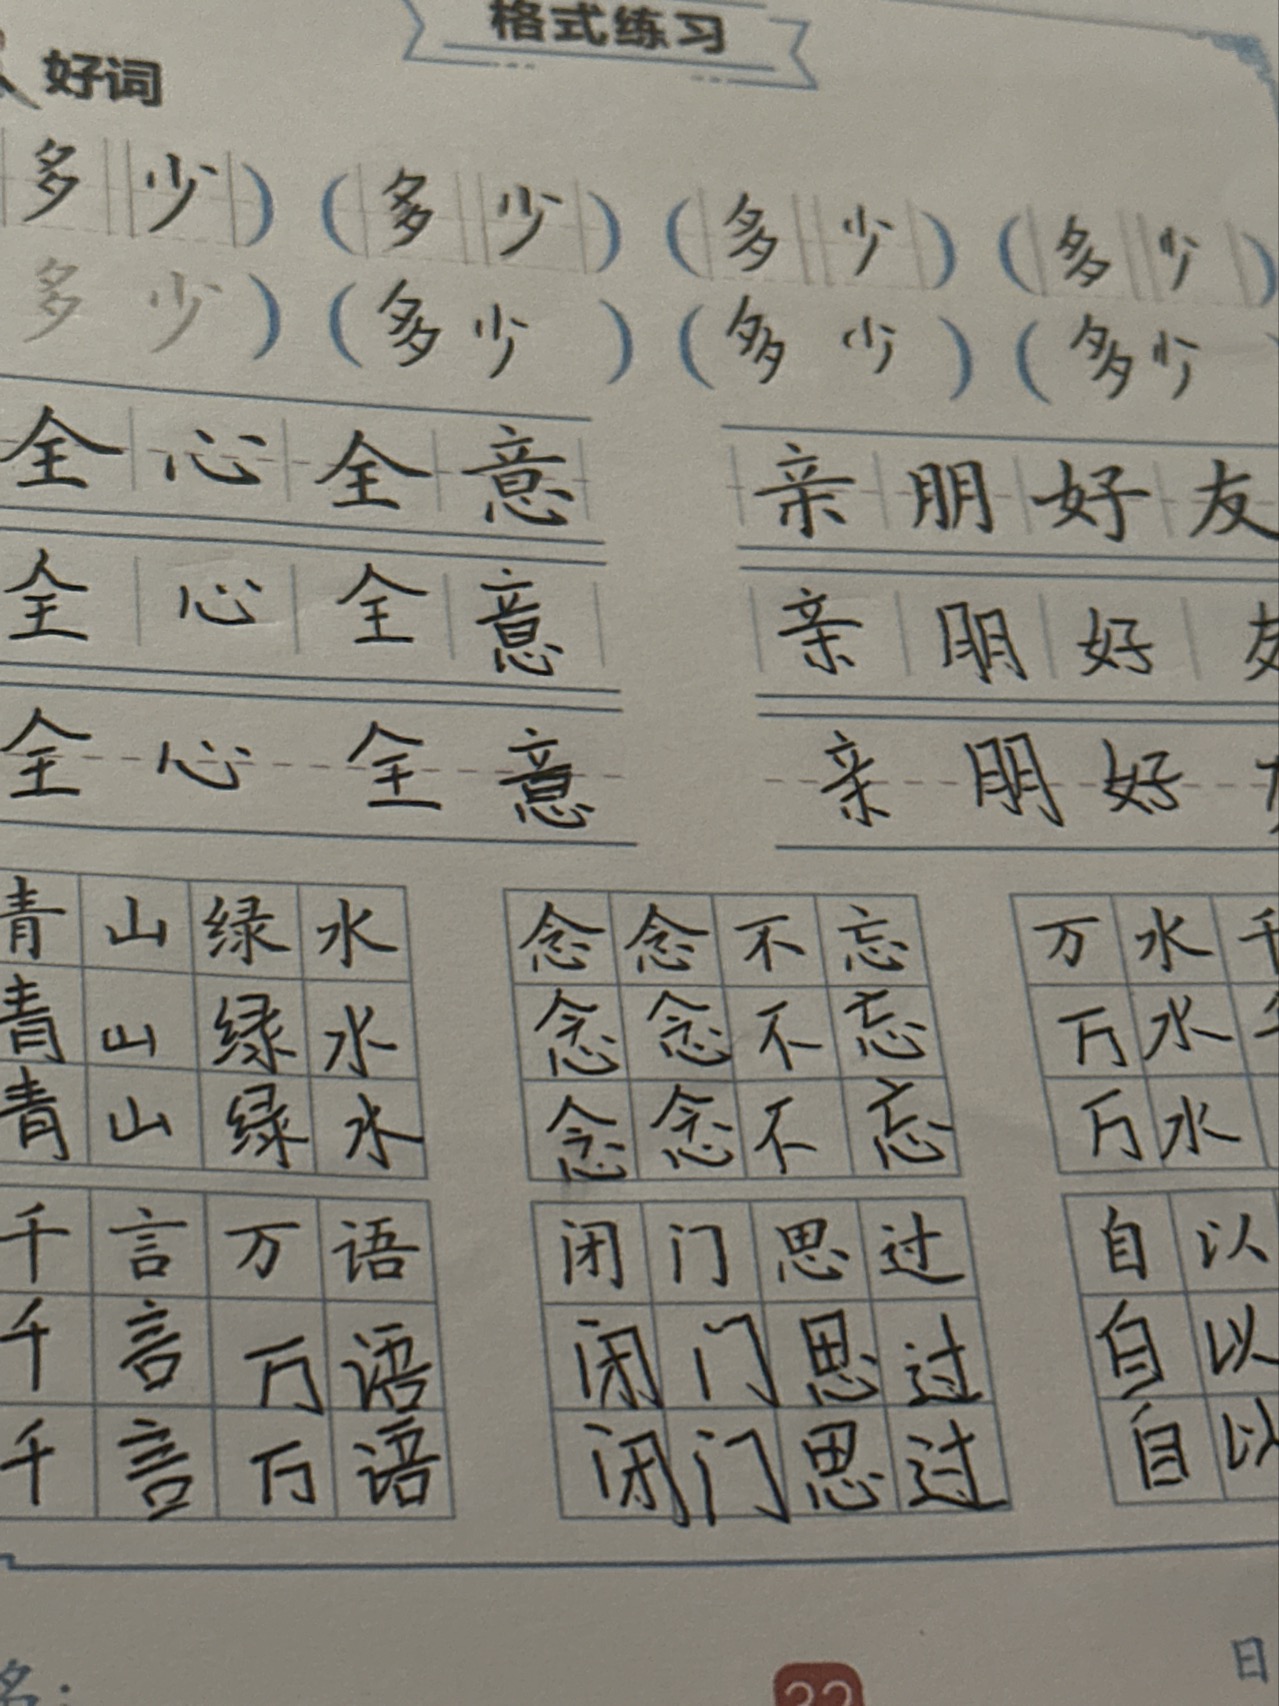 格式练习
好词
多少) (多少) (多少) (多少)
多少) (多少) (多少) (多少
全心全意 亲朋好友
全心全意 亲朋好友
全心全意 亲朋好
青山绿水 念念不忘 万水千
青山绿水 念念不忘 万水
青山绿水 念念不忘 万水
千言万语 闭门思过 自以
千言万语 闭门思过 自以
千言万语 闭门思过 自以
名: 日
32